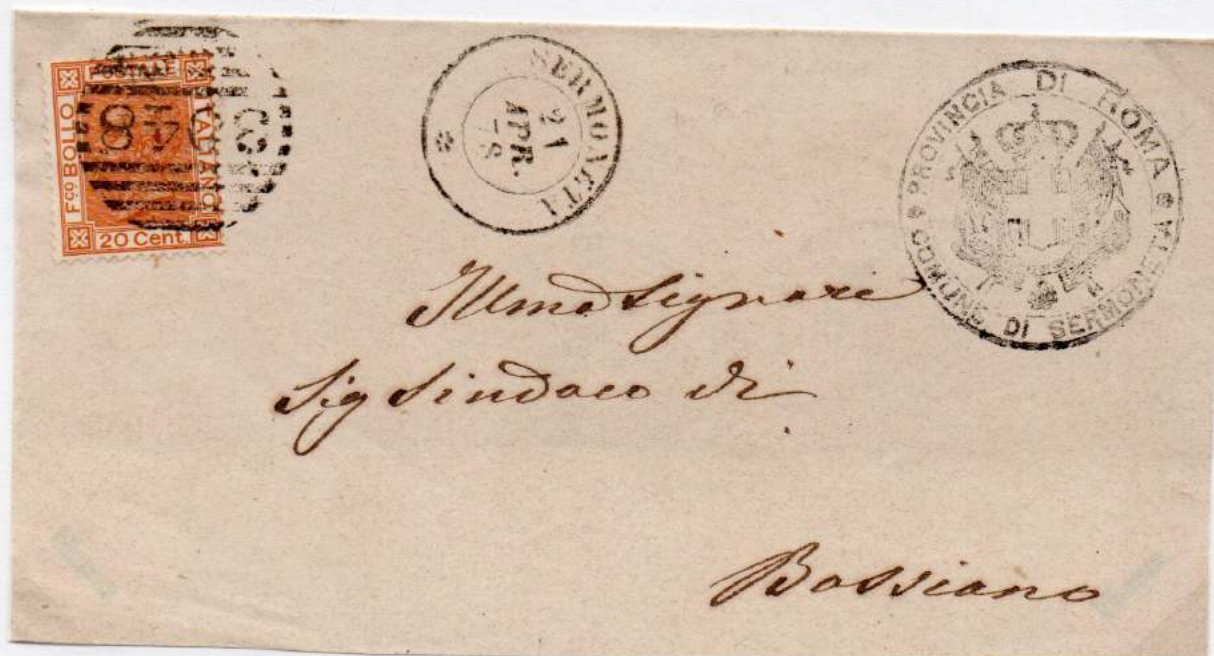 Fco BOLLO
POSTALE
ITALIANO
20 Cent.
SERMONETA
21
APR.
78
PROVINCIA DI ROMA
COMUNE DI SERMONETA
Illmo Signore
Sig Sindaco di
Bassiano